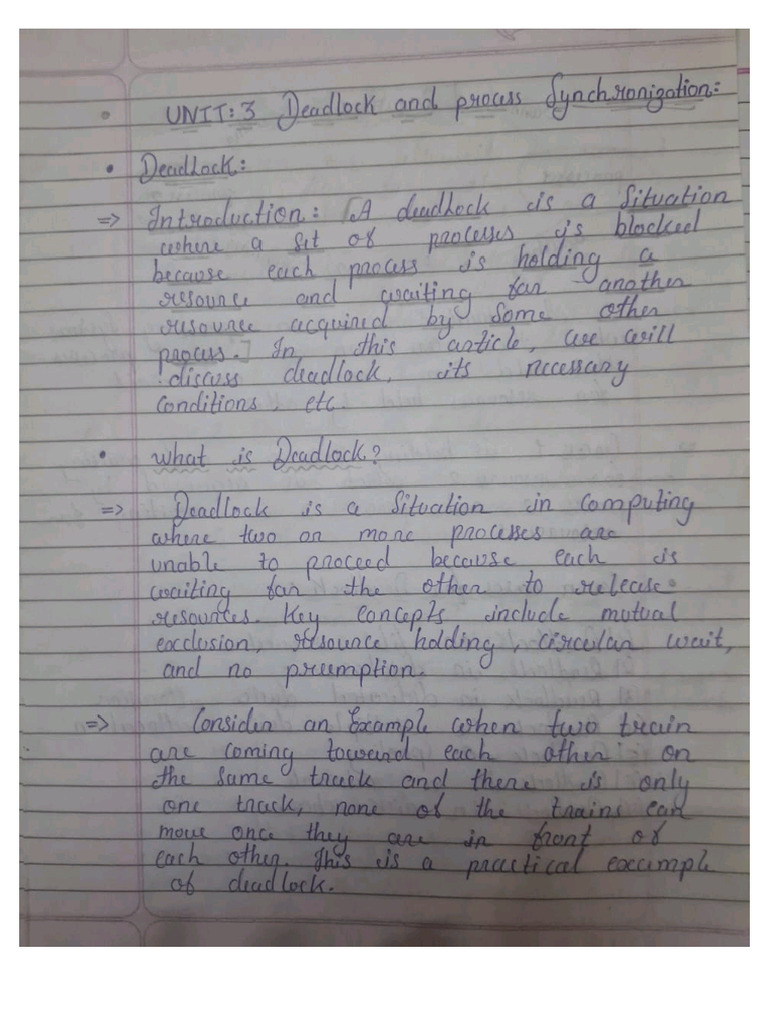 • UNIT: 3 Deadlock and process Synchronization:
• Deadlock:
=> Introduction: [A deadlock is a Situation
where a set of processes is blocked
because each process is holding a
resource and waiting for another
resource acquired by some other
process.] In this article, we will
discuss deadlock, its necessary
conditions, etc.
• what is Deadlock?
=> Deadlock is a Situation in computing
where two or more processes are
unable to proceed because each is
waiting for the other to release
resources. Key concepts include mutual
exclusion, resource holding, circular wait,
and no preemption.
=> Consider an Example when two train
are coming toward each other on
the same track and there is only
one track, none of the trains can
move once they are in front of
each other. This is a practical example
of deadlock.